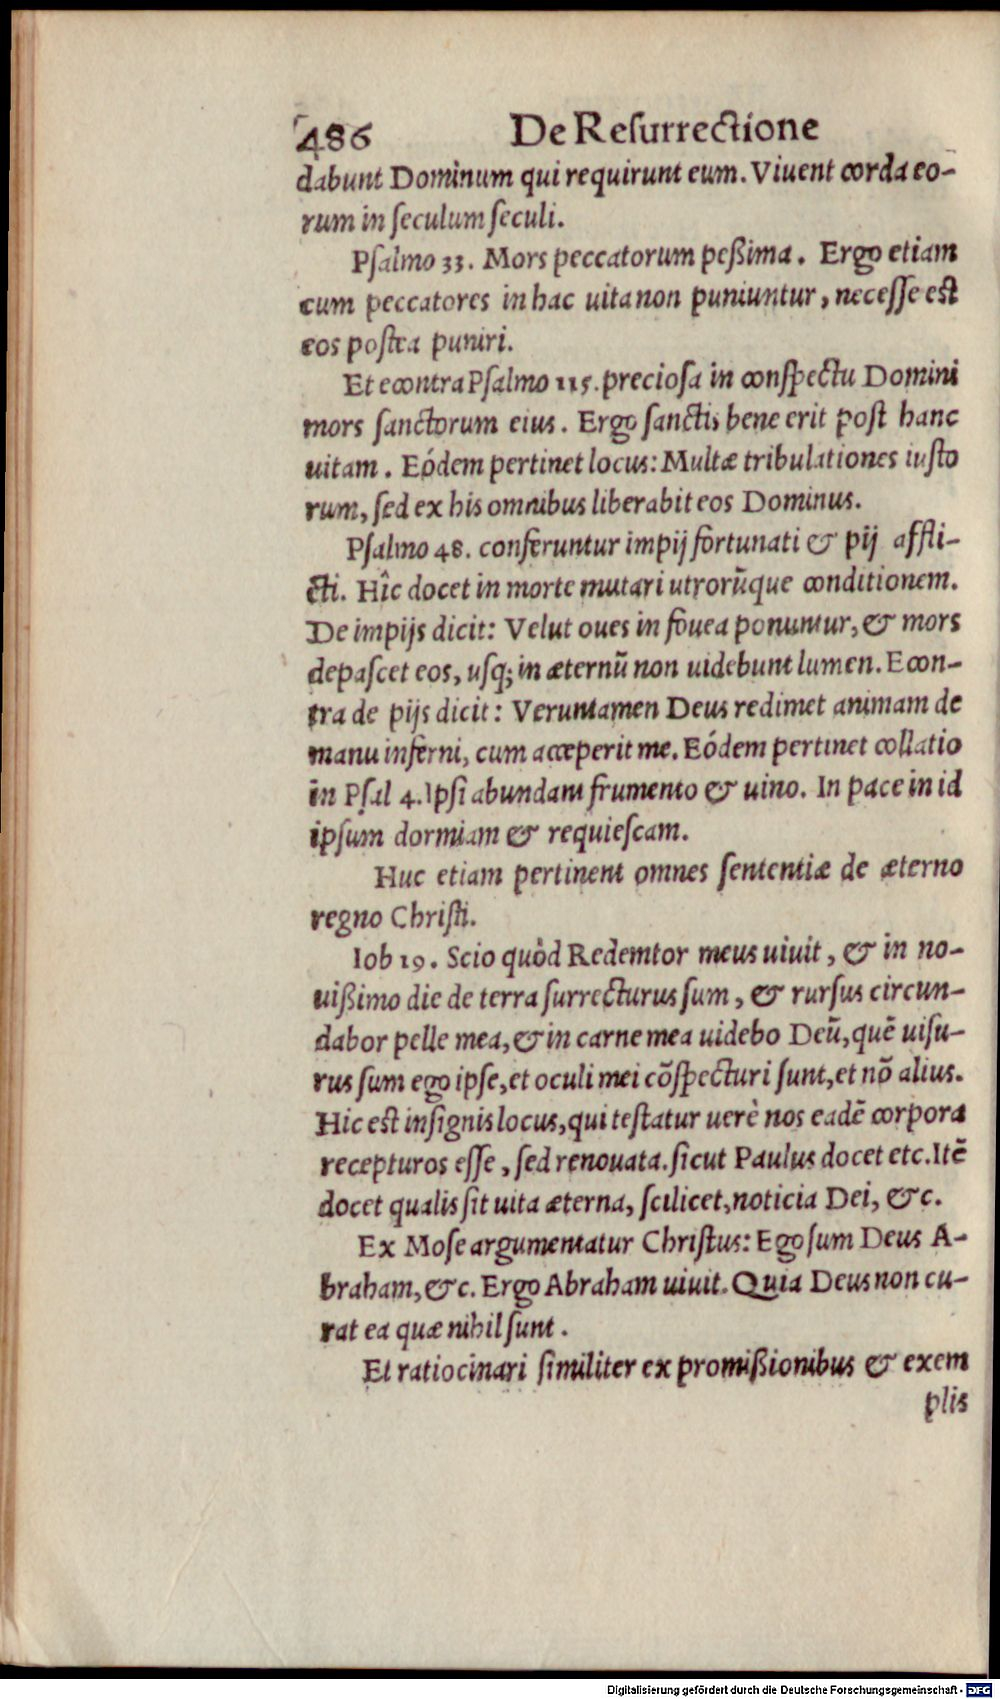 486 De Resurrectione
dabunt Dominum qui requirunt eum. Viuent corda eo-
rum in seculum seculi.
Psalmo 33. Mors peccatorum peßima. Ergo etiam
cum peccatores in hac uita non puniuntur, necesse est
eos postea puniri.
Et econtra Psalmo 115. preciosa in conspectu Domini
mors sanctorum eius. Ergo sanctis bene erit post hanc
uitam. Eódem pertinet locus: Multæ tribulationes iusto
rum, sed ex his omnibus liberabit eos Dominus.
Psalmo 48. conferuntur impij fortunati & pij affli-
cti. Hîc docet in morte mutari utrorũque conditionem.
De impijs dicit: Velut oues in fouea ponuntur, & mors
depascet eos, usq; in æternũ non uidebunt lumen. Econ-
tra de pijs dicit: Veruntamen Deus redimet animam de
manu inferni, cum acceperit me. Eódem pertinet collatio
in Psal 4. Ipsi abundant frumento & uino. In pace in id
ipsum dormiam & requiescam.
Huc etiam pertinent omnes sententiæ de æterno
regno Christi.
Iob 19. Scio quòd Redemtor meus uiuit, & in no-
uißimo die de terra surrecturus sum, & rursus circun-
dabor pelle mea, & in carne mea uidebo Deũ, quẽ uisu-
rus sum ego ipse, et oculi mei cõspecturi sunt, et nõ alius.
Hic est insignis locus, qui testatur uerè nos eadẽ corpora
recepturos esse, sed renouata. sicut Paulus docet etc. Itẽ
docet qualis sit uita æterna, scilicet, noticia Dei, &c.
Ex Mose argumentatur Christus: Ego sum Deus A-
braham, &c. Ergo Abraham uiuit. Quia Deus non cu-
rat ea quæ nihil sunt.
Et ratiocinari similiter ex promißionibus & exem
plis
Digitalisierung gefördert durch die Deutsche Forschungsgemeinschaft - DFG